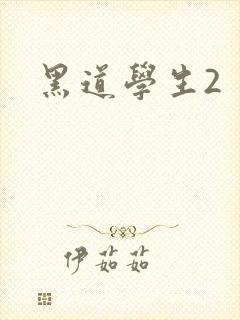 黑道學生2
伊茹茹